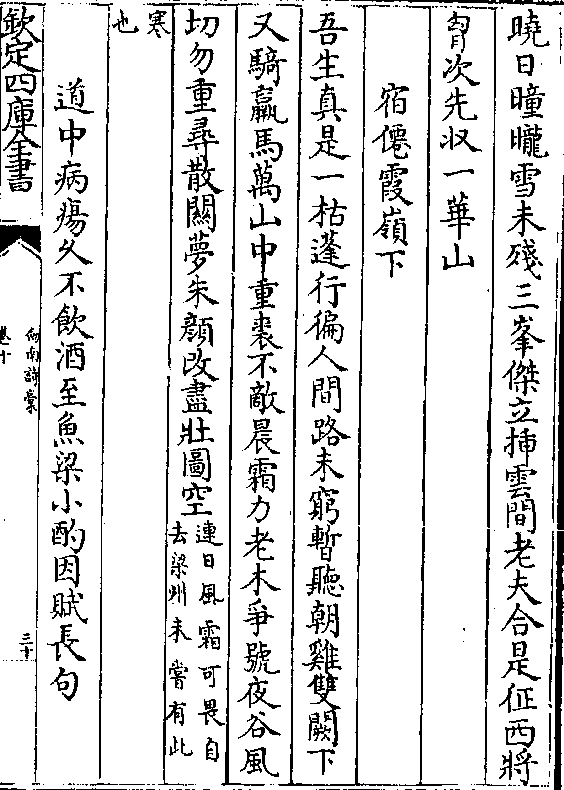 曉日曈曨雪未殘三峯傑立揷雲間老夫合是征西將
胷次先收一華山
宿僊霞嶺下
吾生真是一枯蓬行徧人間路未窮暫聽朝雞雙闕下
又騎羸馬萬山中重裘不敵晨霜力老木爭號夜谷風
切勿重尋散關夢朱顔改盡壯圖空連日風霜可畏自
去梁州未嘗有此
寒
也
道中病瘍久不飲酒至魚梁小酌因賦長句
欽定四庫全書
劒南詩稾
卷十
三十